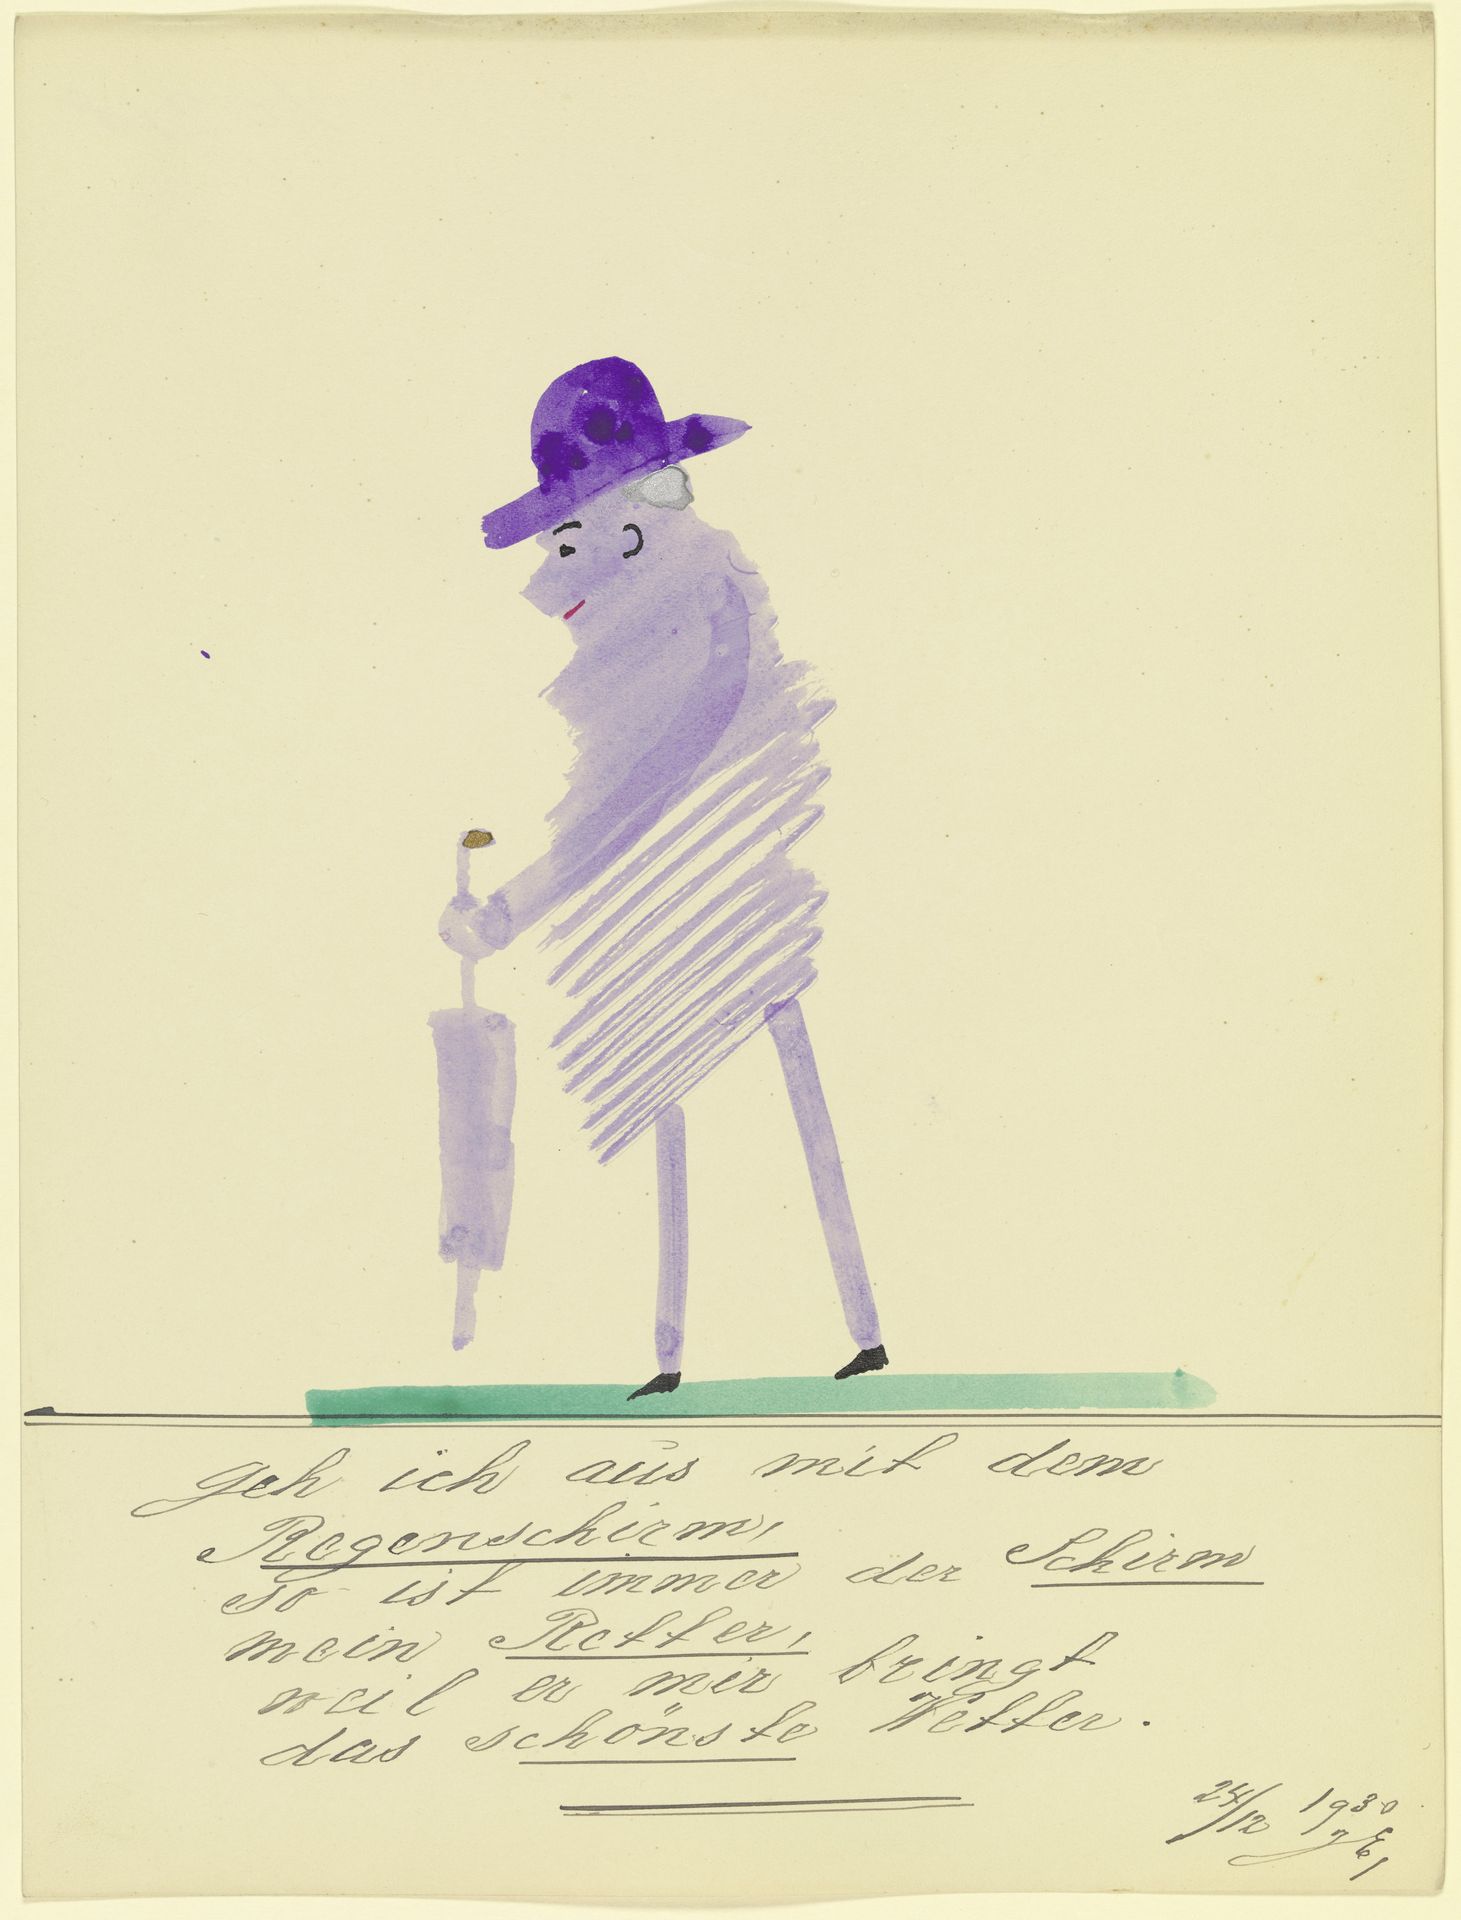 geh ich aus mit dem
Regenschirm,
so ist immer der Schirm
mein Retter,
weil er mir bringt
das schönste Wetter.
24/12 1930